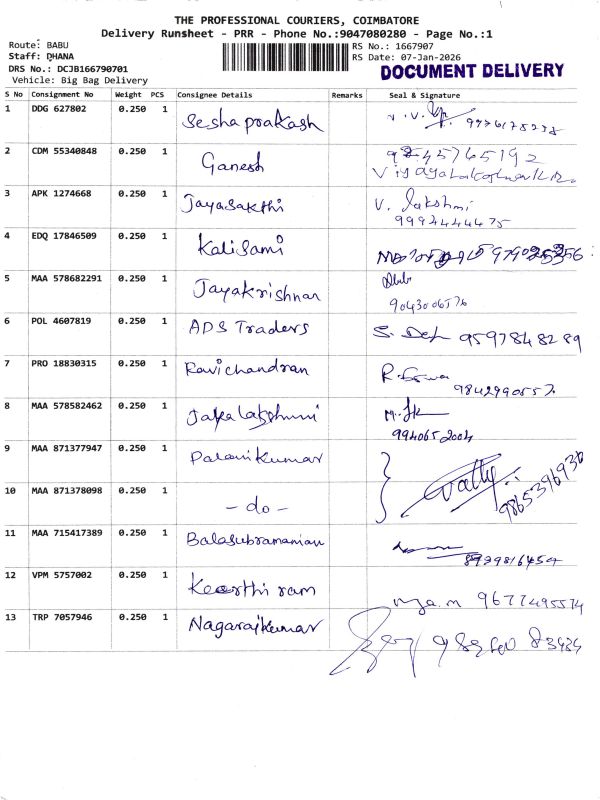 THE PROFESSIONAL COURIERS, COIMBATORE
Delivery Runsheet - PRR - Phone No.:9047080280 - Page No.:1
Route: BABU
RS No.: 1667907
Staff: DHANA
RS Date: 07-Jan-2026
DRS No.: DCJB166790701
DOCUMENT DELIVERY
Vehicle: Big Bag Delivery
S No Consignment No Weight PCS Consignee Details Remarks Seal & Signature
1 DDG 627802 0.250 1 Seshaprakash
2 CDM 55340848 0.250 1 Ganesh
3 APK 1274668 0.250 1 Jayasakthi V. Lakshmi
9994444475
4 EDQ 17846509 0.250 1 Kalisami
5 MAA 578682291 0.250 1 Jayakrishnan
9043006576
6 POL 4607819 0.250 1 ADS Traders 9597848289
7 PRO 18830315 0.250 1 Ravichandran
9842990557
8 MAA 578582462 0.250 1 Jayalakshmi
9940652004
9 MAA 871377947 0.250 1 Palanikumar
9865396936
10 MAA 871378098 0.250 1 - do -
11 MAA 715417389 0.250 1 Balasubramanian
8939816454
12 VPM 5757002 0.250 1 Keerthi ram
9677495574
13 TRP 7057946 0.250 1 Nagarajkumar